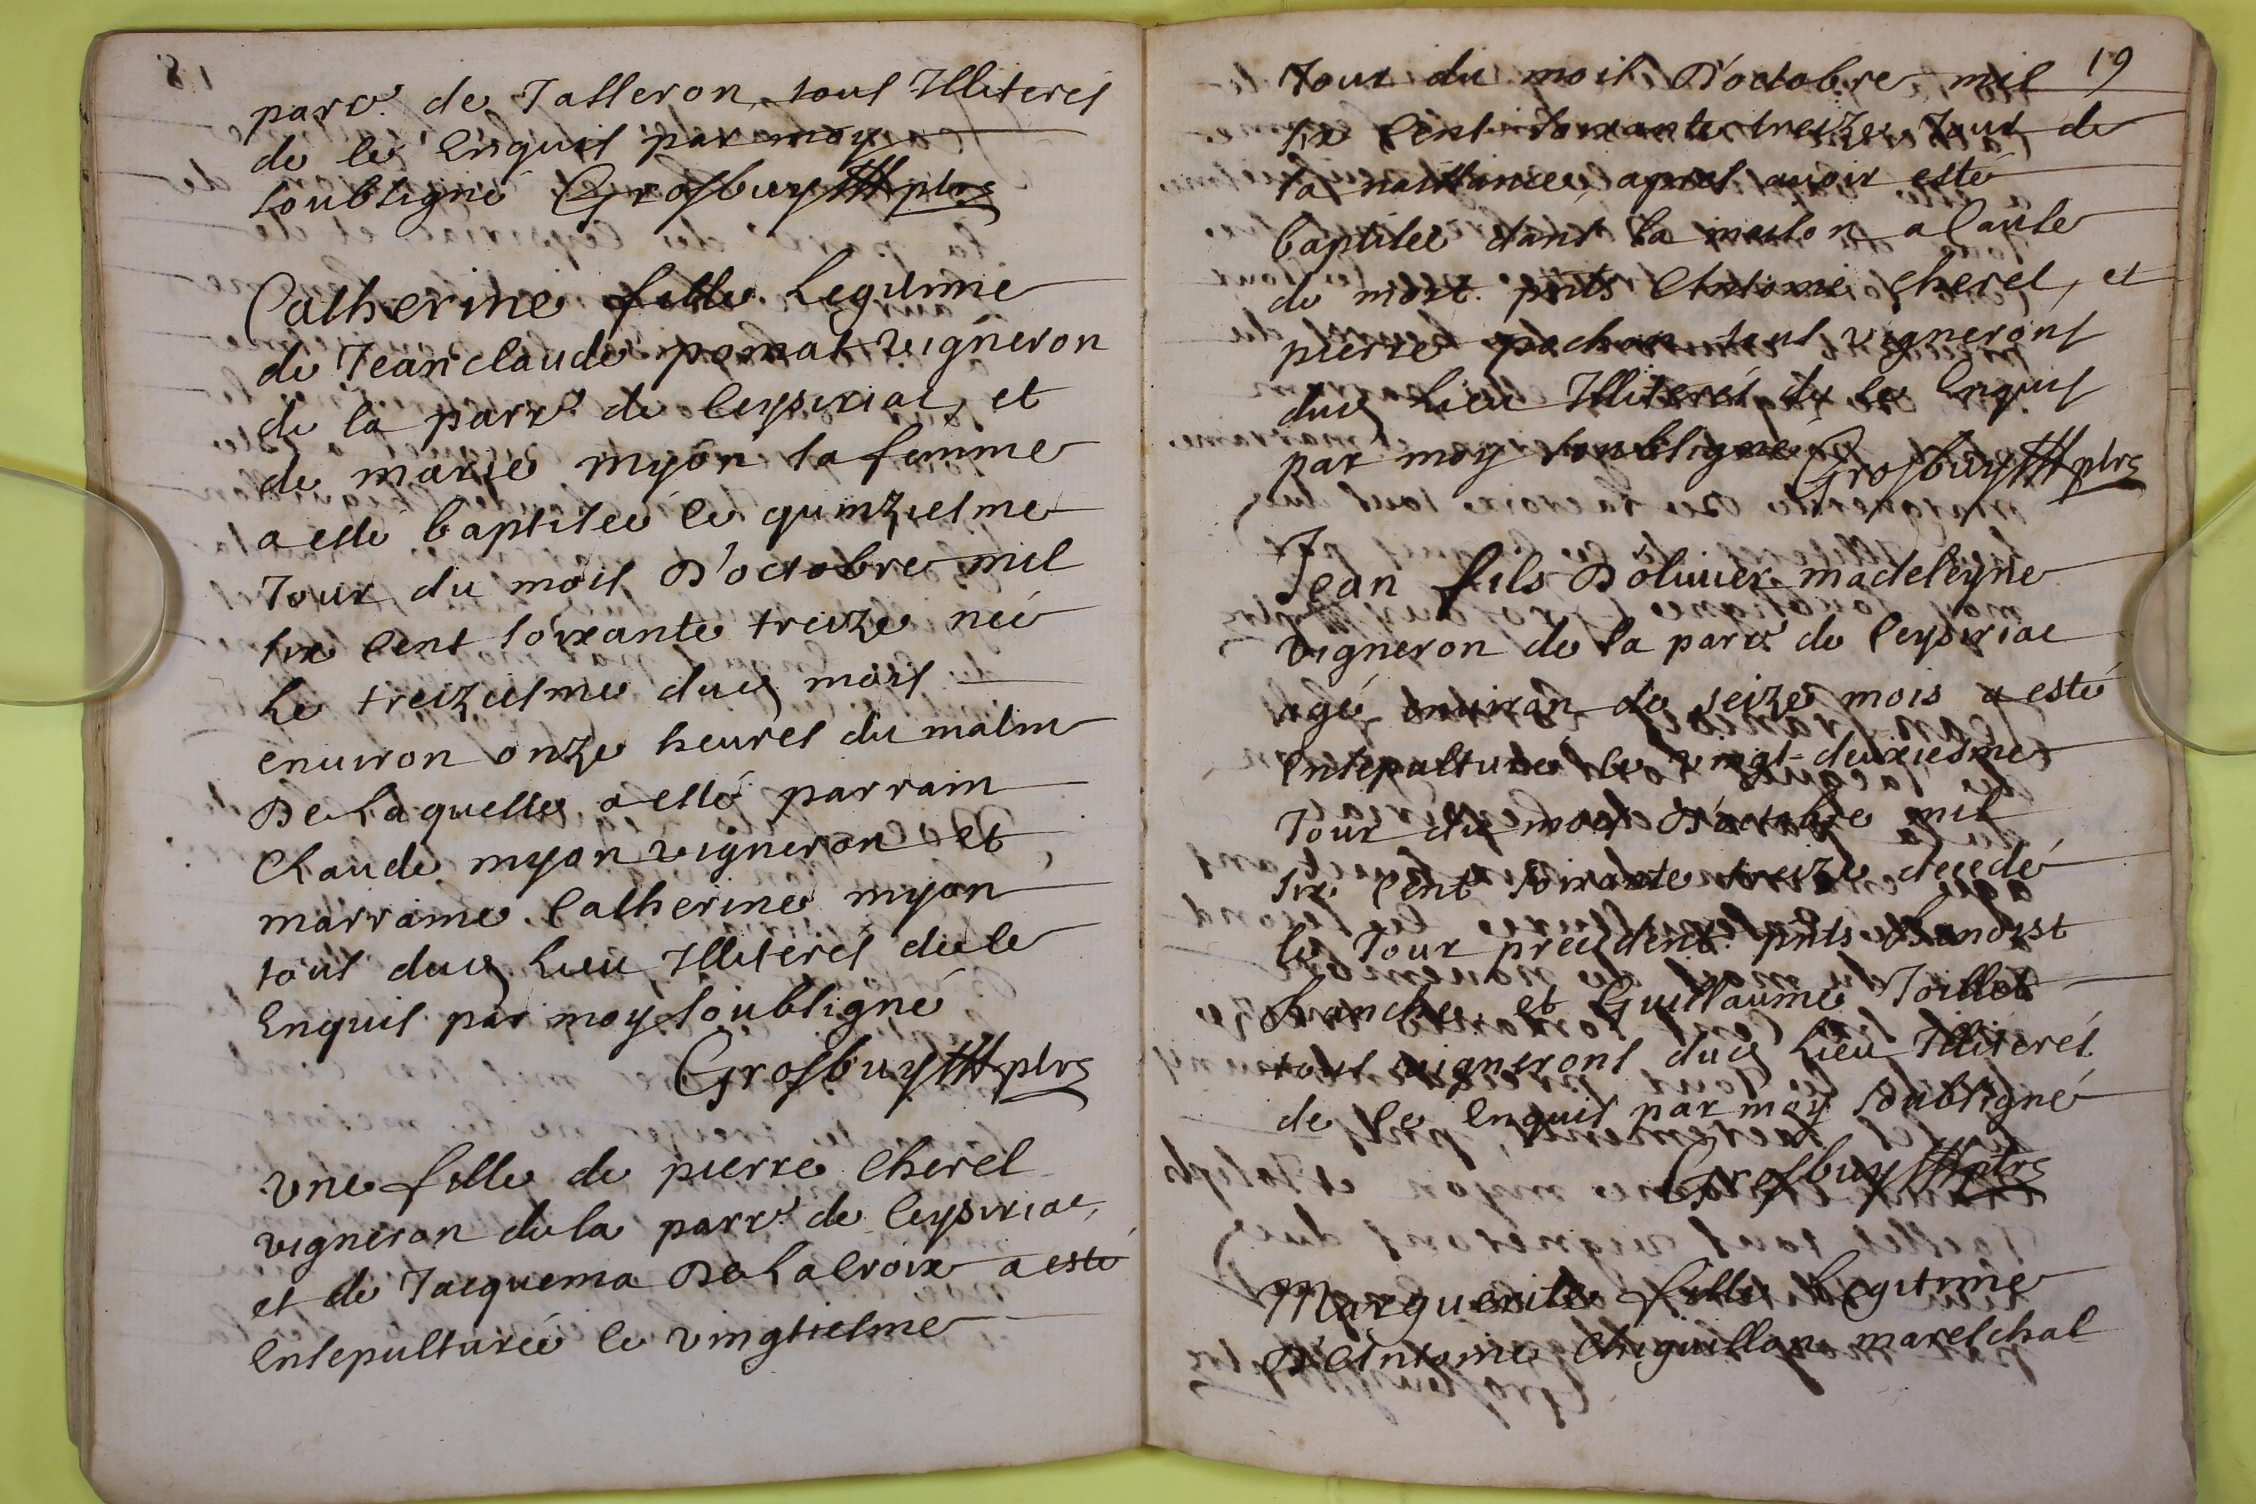 parr. de Jasseron, tous Illiterés
de ce Enquis par moy
soubsigné Grosbuy ptre
Catherine fille Legitime
de Jean claude pomat vigneron
de la parr. de Ceysiriac, et
de marie myon sa femme
a esté baptisée le quinziesme
Jour du mois D'octobre mil
six Cent soixante treize née
Le treiziesme dud mois
enuiron onze heures du matin
De Laquelle a esté parrain
Claude myon vigneron et
marraine Catherine myon
tous dud Lieu Illiterés de ce
Enquis par moy soubsigné
Grosbuy ptre
vne fille de pierre Cherel
vigneron de la parr. de Ceysiriac,
et de Jacquema De La Croix a esté
Ensepulturée le vingtiesme
19
Jour du mois D'octobre mil
six Cent soixante treize Jour de
sa naissance, apres auoir esté
baptisée dans la maison a Cause
de mort. pnts Antoine Cherel, et
pierre pochon tous vignerons
dud Lieu Illiterés de ce Enquis
par moy soubsigné
Grosbuy ptre
Jean fils D'oliuier madeleyne
vigneron de la parr. de Ceysiriac
agé enuiron de seize mois a esté
Ensepulturé le vingt-deuxiesme
Jour du mois D'octobre mil
six Cent soixante treize decedé
le Jour precedent. pnts Benoist
et Guillaume Joillet
tous vignerons dud Lieu Illiterés
de ce Enquis par moy soubsigné
Grosbuy ptre
Marguerite fille Legitime
D'Antoine Chiguillon mareschal